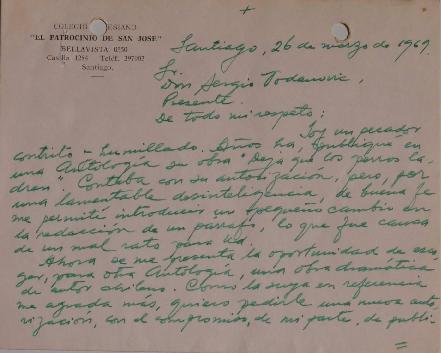 COLEGIO SALESIANO
"EL PATROCINIO DE SAN JOSE"
BELLAVISTA 0550
Casilla 1254 Teléf. 397002
Santiago.
+
Santiago, 26 de marzo de 1969.
Sr.
Don Sergio Vodanovic,
Presente.
De todo mi respeto:
Soy un pecador
contrito y humillado. Años ha, publiqué en
una Antología su obra "Deja que los perros la-
dren". Contaba con su autorización, pero, por
una lamentable desinteligencia, de buena fe
me permití introducir un pequeño cambio en
la redacción de un párrafo, lo que fue causa
de un mal rato para Ud.
Ahora se me presenta la oportunidad de esco-
ger, para otra Antología, una obra dramática
de autor chileno. Como la suya en referencia
me agrada más, quiero pedirle una nueva auto-
rización, con el compromiso, de mi parte, de publi-
=